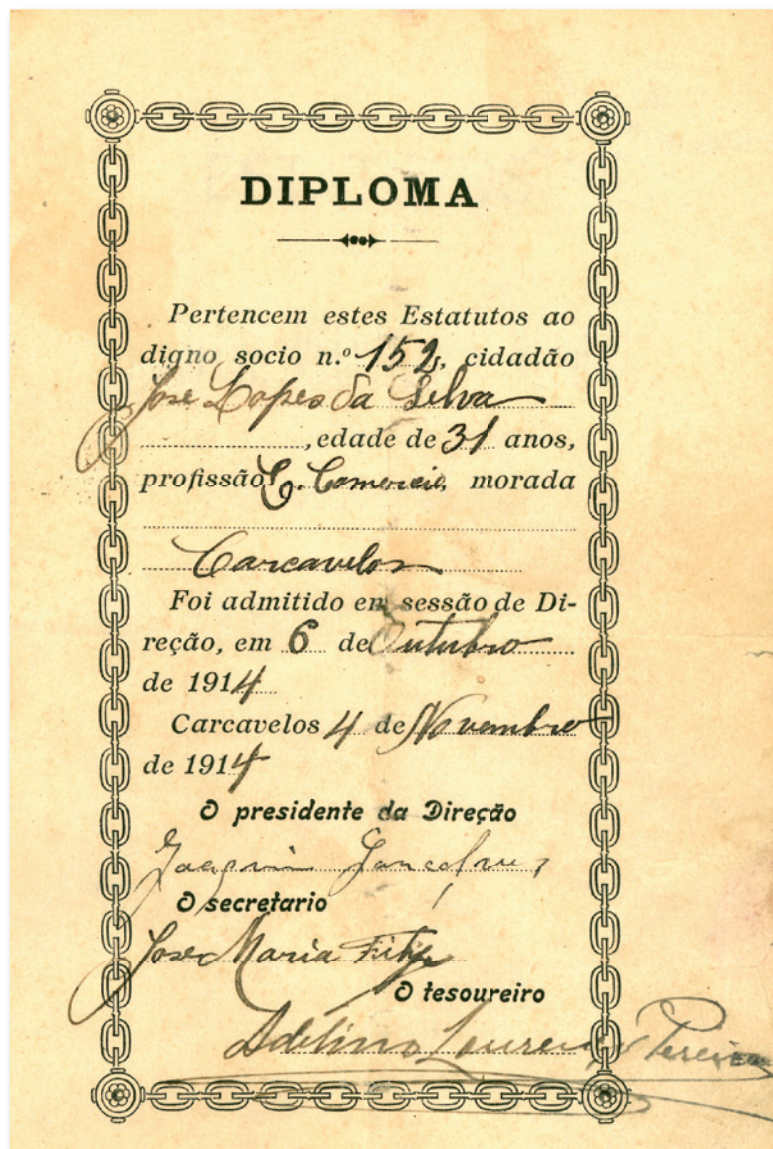 DIPLOMA
Pertencem estes Estatutos ao
digno socio n.º 152, cidadão
Jose Lopes da Silva
, edade de 31 anos,
profissão E. Comercio, morada
Carcavelos
Foi admitido em sessão de Di-
reção, em 6 de Outubro
de 1914
Carcavelos 4 de Novembro
de 1914
O presidente da Direção
Joaquim Gonçalves
O secretario
Jose Maria Filipe
O tesoureiro
Adelino Lourenço Pereira